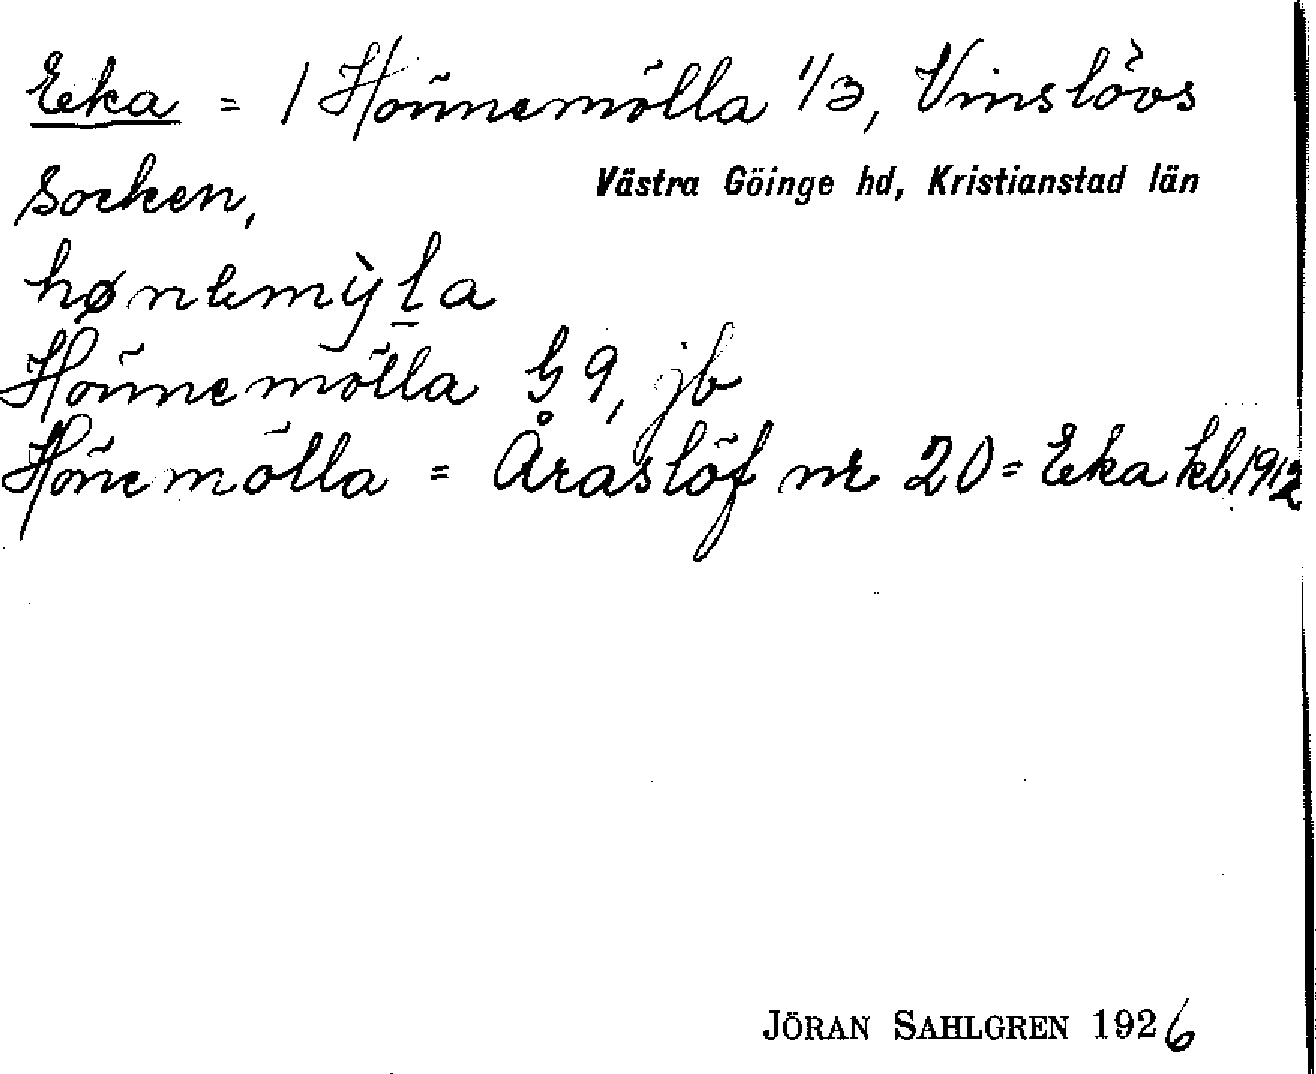 Eka = / Hönnemölla 1/3, Vinslövs
socken, Västra Göinge hd, Kristianstad län
hønemỳla
Hönnemölla G 9, jb
Hönemölla = Åraslöf nr 20 = Eka kb 1912
JÖRAN SAHLGREN 1926